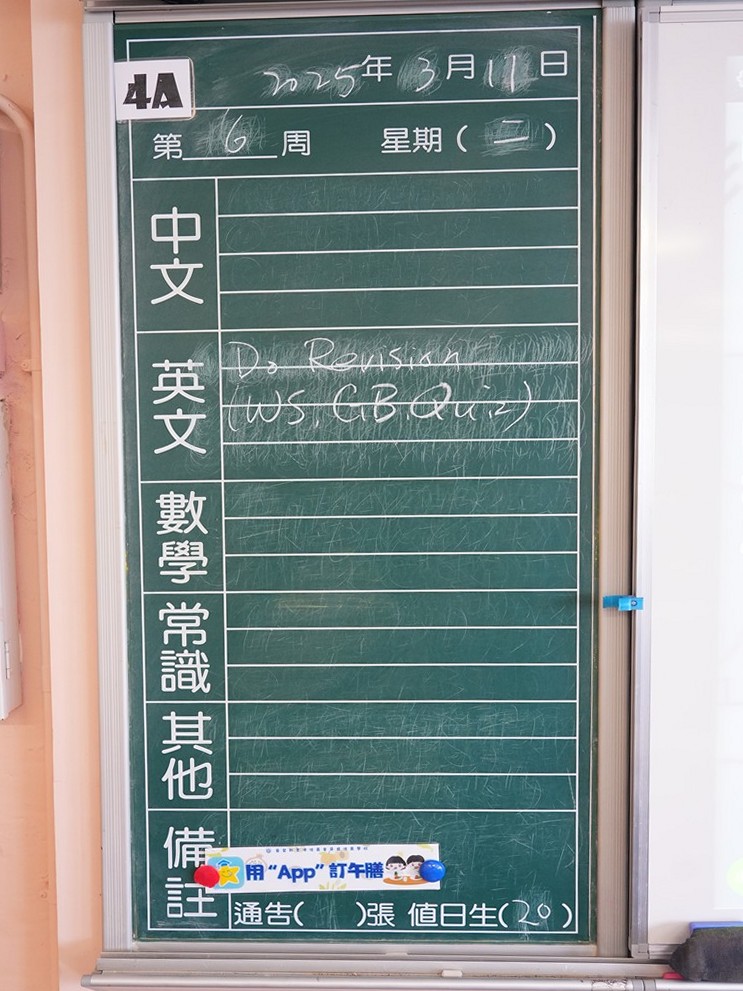 4A
2025年3月11日
第6周 星期(二)
中文
英文
Do Revision
(WS, GB, Quiz)
數學
常識
其他
備註
用“App”訂午膳
通告( )張 值日生(20)